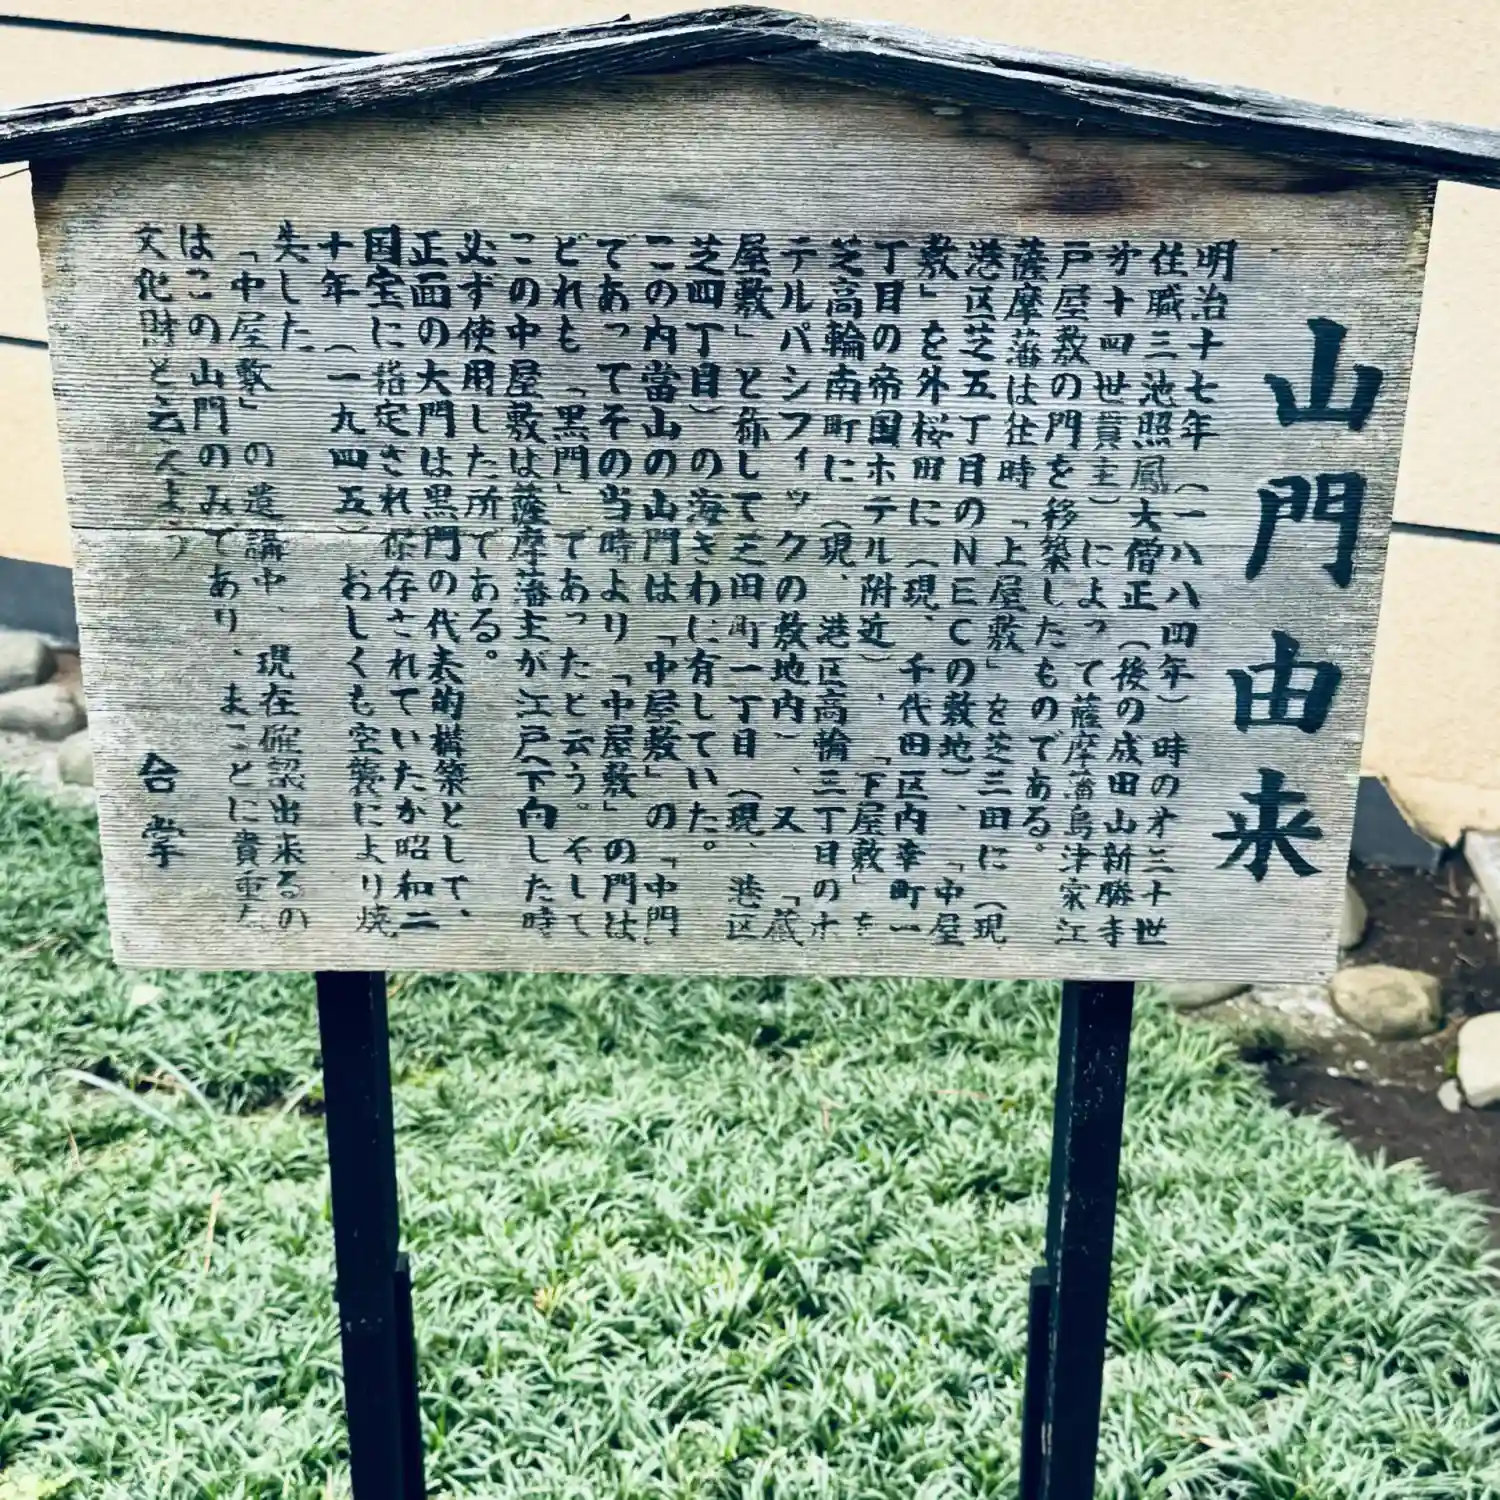 山門由来
明治十七年(一八八四年)時のオ三十世
住職三池照鳳大僧正(後の成田山新勝寺
オ十四世貫主)によって薩摩藩島津家江
戸屋敷の門を移築したものである。
薩摩藩は往時「上屋敷」を芝三田に(現
港区芝五丁目のNECの敷地)、「中屋
敷」を外桜田に(現、千代田区内幸町一
丁目の帝国ホテル附近)、「下屋敷」を
芝高輪南町に(現、港区高輪三丁目のホ
テルパシフィックの敷地内)、又「蔵
屋敷」と称して芝田町一丁目(現、港区
芝四丁目)の海ぎわに有していた。
この内當山の山門は「中屋敷」の「中門」
であってその当時より「中屋敷」の門は
どれも「黒門」であったと云う。そして
この中屋敷は薩摩藩主が江戸へ下向した時
必ず使用した所である。
正面の大門は黒門の代表的構築として、
国宝に指定され保存されていたが昭和二
十年(一九四五)おしくも空襲により焼
失した
「中屋敷」の遺構中、現在確認出来るの
はこの山門のみであり、まことに貴重な
文化財と云えよう
合掌